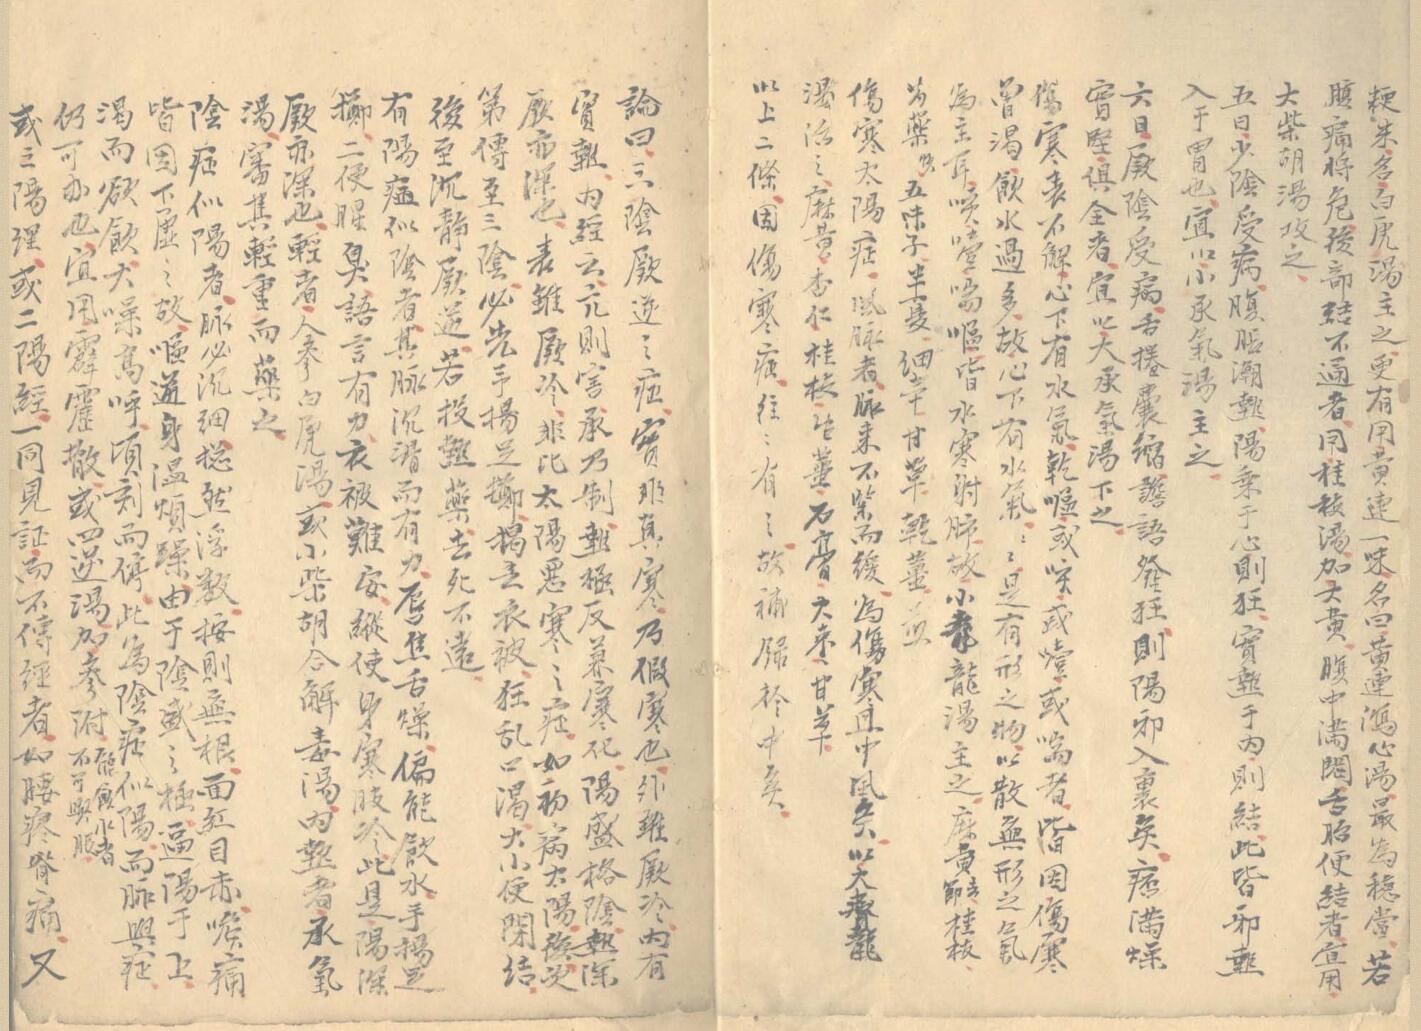 粳米名白虎湯主之更有用黃連一味名曰黃連瀉心湯最為穩當若
腹痛將危後部結不通者用桂枝湯加大黃腹中滿悶舌胎便結者宜用
大柴胡湯攻之
五日少陰受病腹脹潮熱陽乘于心則狂實熱于內則結此皆邪熱
入于胃也宜以小承氣湯主之
六日厥陰受病舌捲囊縮譫語發狂則陽邪入裏矣痞滿燥
實堅俱全者宜以大承氣湯下之
傷寒表不解心下有水氣乾嘔或咳或噎或喘者皆因傷寒
曾渴飲水過多故心下有水氣〻是有形之物以散無形之氣
為主耳咳噎喘嘔皆水寒射肺故小青龍湯主之麻黃去節桂枝
芍藥五味子半夏細辛甘草乾薑
傷寒太陽症風脉者脉来不緊而緩為傷寒且中風矣以大青龍
湯治之麻黃杏仁桂枝生薑石膏大枣甘草
以上二條因傷寒症往〻有之故補歸於中矣
論曰三陰厥逆之症實非真寒乃假寒也外雖厥冷內有
實熱內經云亢則害承乃制熱極反兼寒化陽盛格陰熱深
厥亦深也表雖厥冷非比太陽惡寒之症如初病太陽後次
第傳至三陰必先手揚足擲揭去衣被狂乱口渴大小便閉結
後至沉静厥逆若投熱藥去死不遠
有陽症似陰者其脉沉滑而有力唇焦舌燥偏能飲水手揚足
擲二便腥臭語言有力衣被難安縱使身寒肢冷此是陽深
厥亦深也輕者人參白虎湯或小柴胡合解毒湯內熱者承氣
湯審其輕重而藥之
陰症似陽者脉必沉細總然浮数按則無根面紅目赤喉痛
皆因下虛之故嘔逆身溫煩躁由于陰盛之極逼陽于上
渴而欲飲大噪高呼頃刻而停此為陰症似陽而脉與症
仍可办也宜用霹靂散或四逆湯加參附能飲水者不可與服
或三陽理或二陽經一同見証而不傳經者如腰疼脊痛又